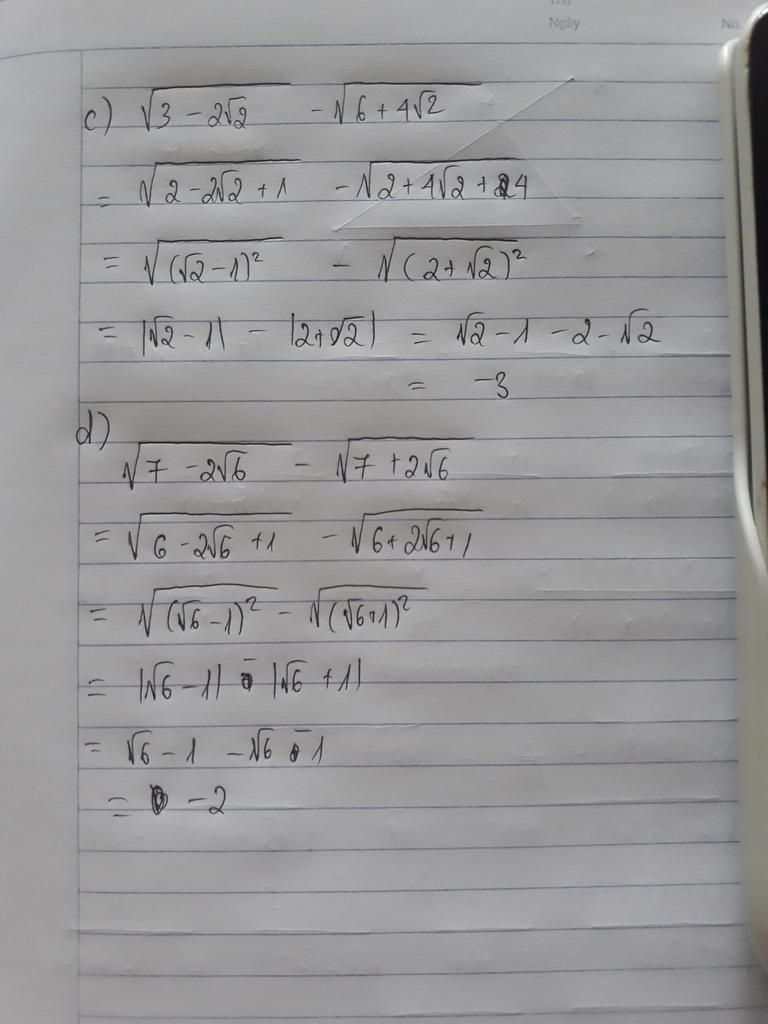 Thứ
Ngày No.
c) √(3 - 2√2) - √(6 + 4√2)
= √(2 - 2√2 + 1) - √(2 + 4√2 + 4)
= √((√2 - 1)²) - √((2 + √2)²)
= |√2 - 1| - |2 + √2| = √2 - 1 - 2 - √2
= -3
d)
√(7 - 2√6) - √(7 + 2√6)
= √(6 - 2√6 + 1) - √(6 + 2√6 + 1)
= √((√6 - 1)²) - √((√6 + 1)²)
= |√6 - 1| - |√6 + 1|
= √6 - 1 - √6 - 1
= -2